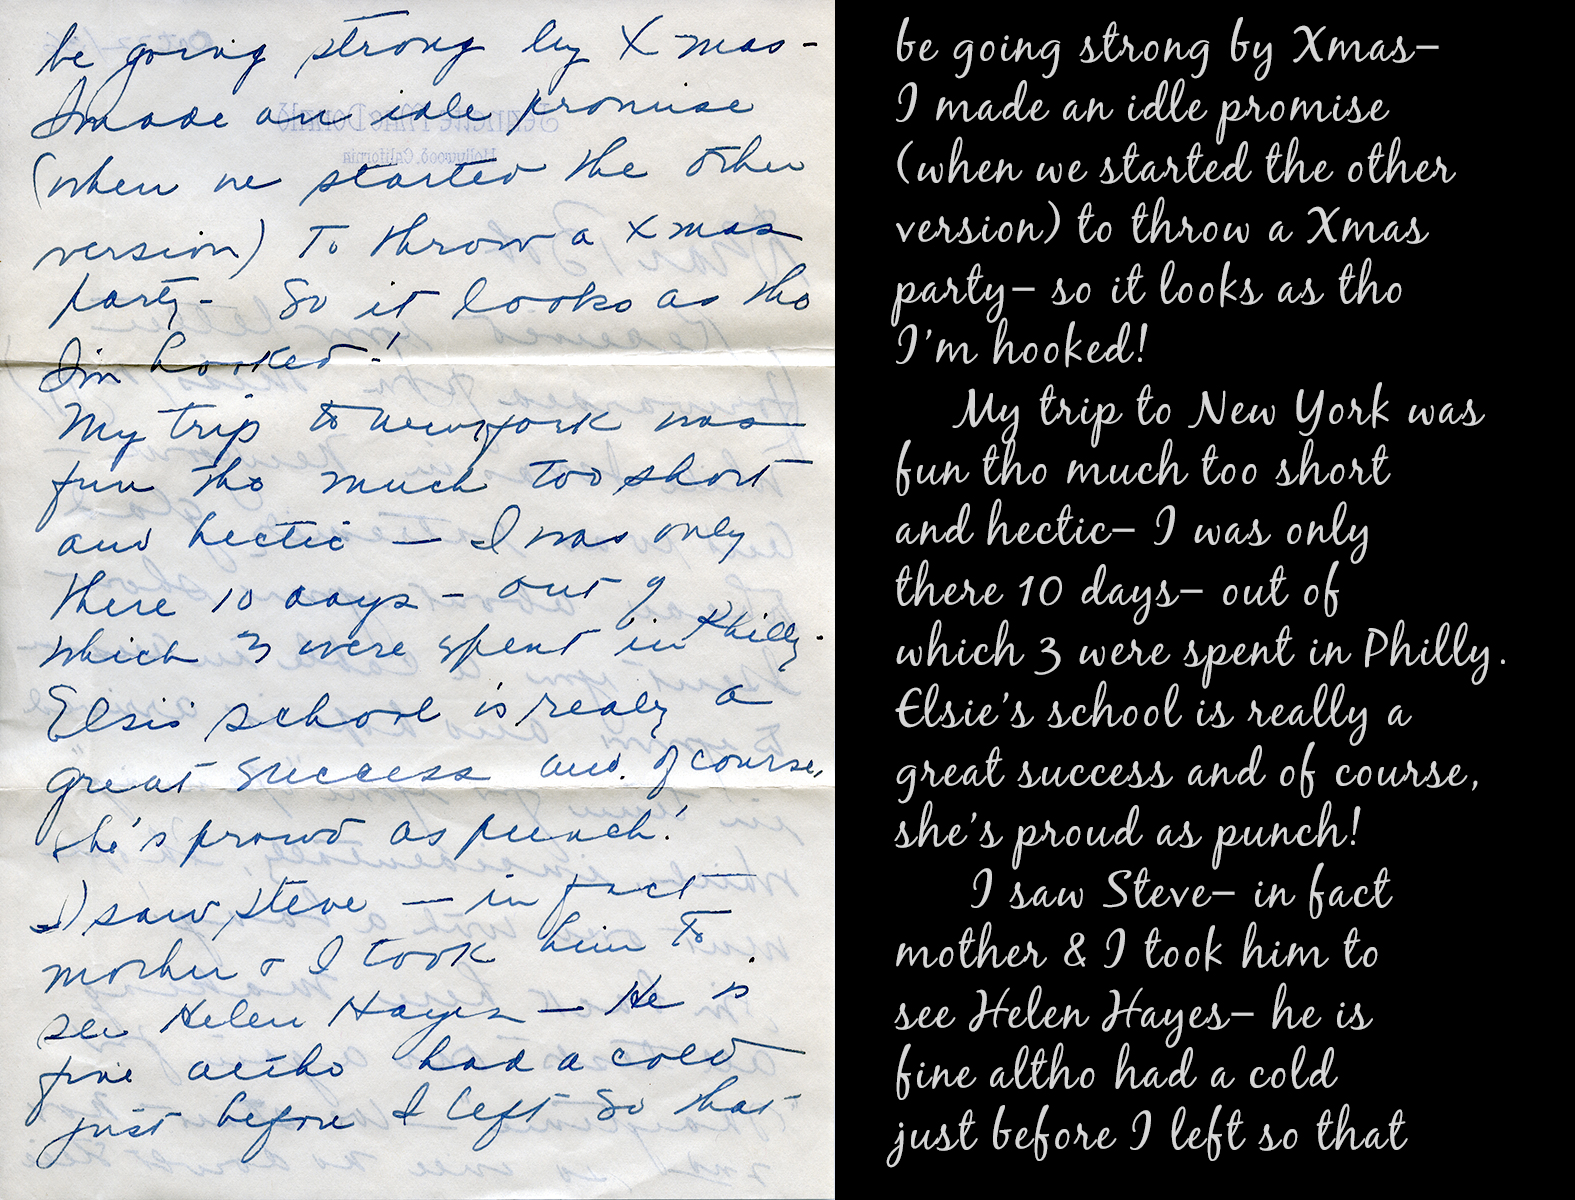 be going strong by Xmas-
I made an idle promise
(when we started the other
version) to throw a Xmas
party- So it looks as tho
I'm hooked!
My trip to New York was
fun tho much too short
and hectic — I was only
there 10 days - out of
which 3 were spent in Philly.
Elsie's school is realy a
great success and of course,
she's proud as punch!
I saw Steve — in fact
mother & I took him to
see Helen Hayes — He is
fine altho had a cold
just before I left so that
Jeanette MacDonald
Hollywood, California
be going strong by Xmas–
I made an idle promise
(when we started the other
version) to throw a Xmas
party– so it looks as tho
I'm hooked!
My trip to New York was
fun tho much too short
and hectic– I was only
there 10 days– out of
which 3 were spent in Philly.
Elsie's school is really a
great success and of course,
she's proud as punch!
I saw Steve– in fact
mother & I took him to
see Helen Hayes– he is
fine altho had a cold
just before I left so that